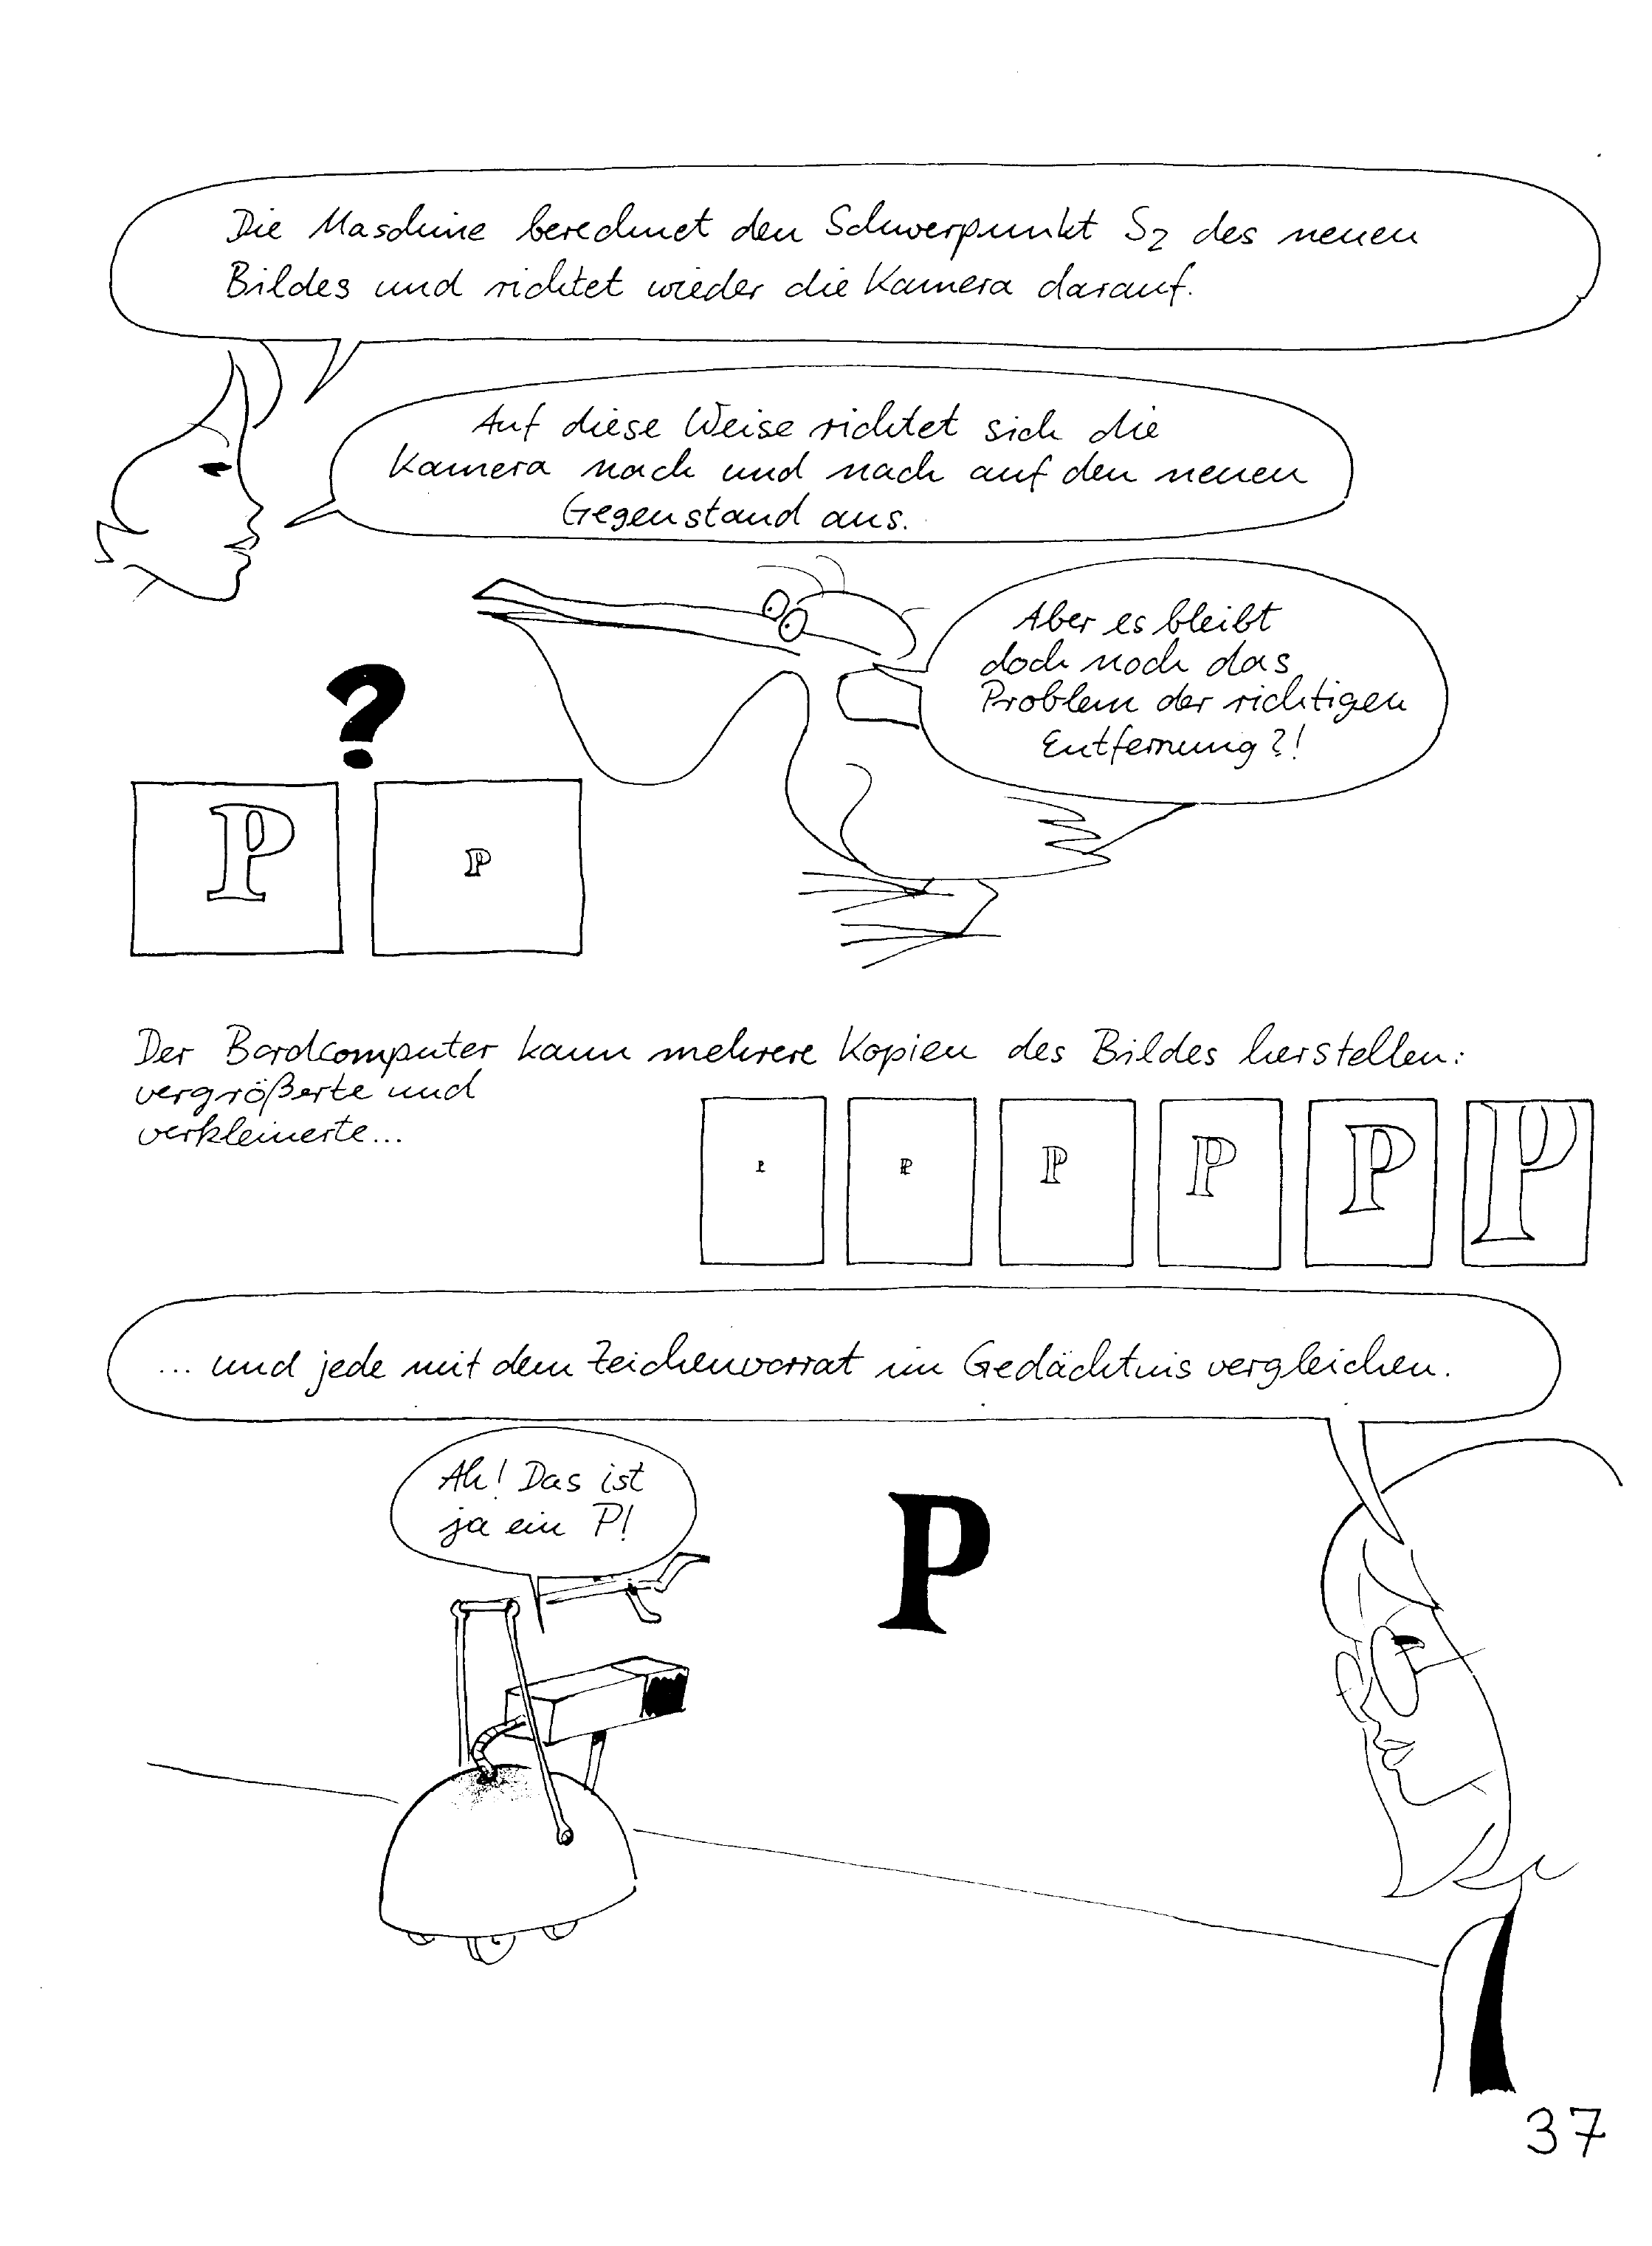 Die Maschine berechnet den Schwerpunkt S2 des neuen
Bildes und richtet wieder die Kamera darauf.
Auf diese Weise richtet sich die
Kamera nach und nach auf den neuen
Gegenstand aus.
Aber es bleibt
doch noch das
Problem der richtigen
Entfernung?!
?
P P
Der Bordcomputer kann mehrere Kopien des Bildes herstellen:
vergrößerte und
verkleinerte...
P P P P P P
... und jede mit dem Zeichenvorrat im Gedächtnis vergleichen.
Ah! Das ist
ja ein P!
P
37